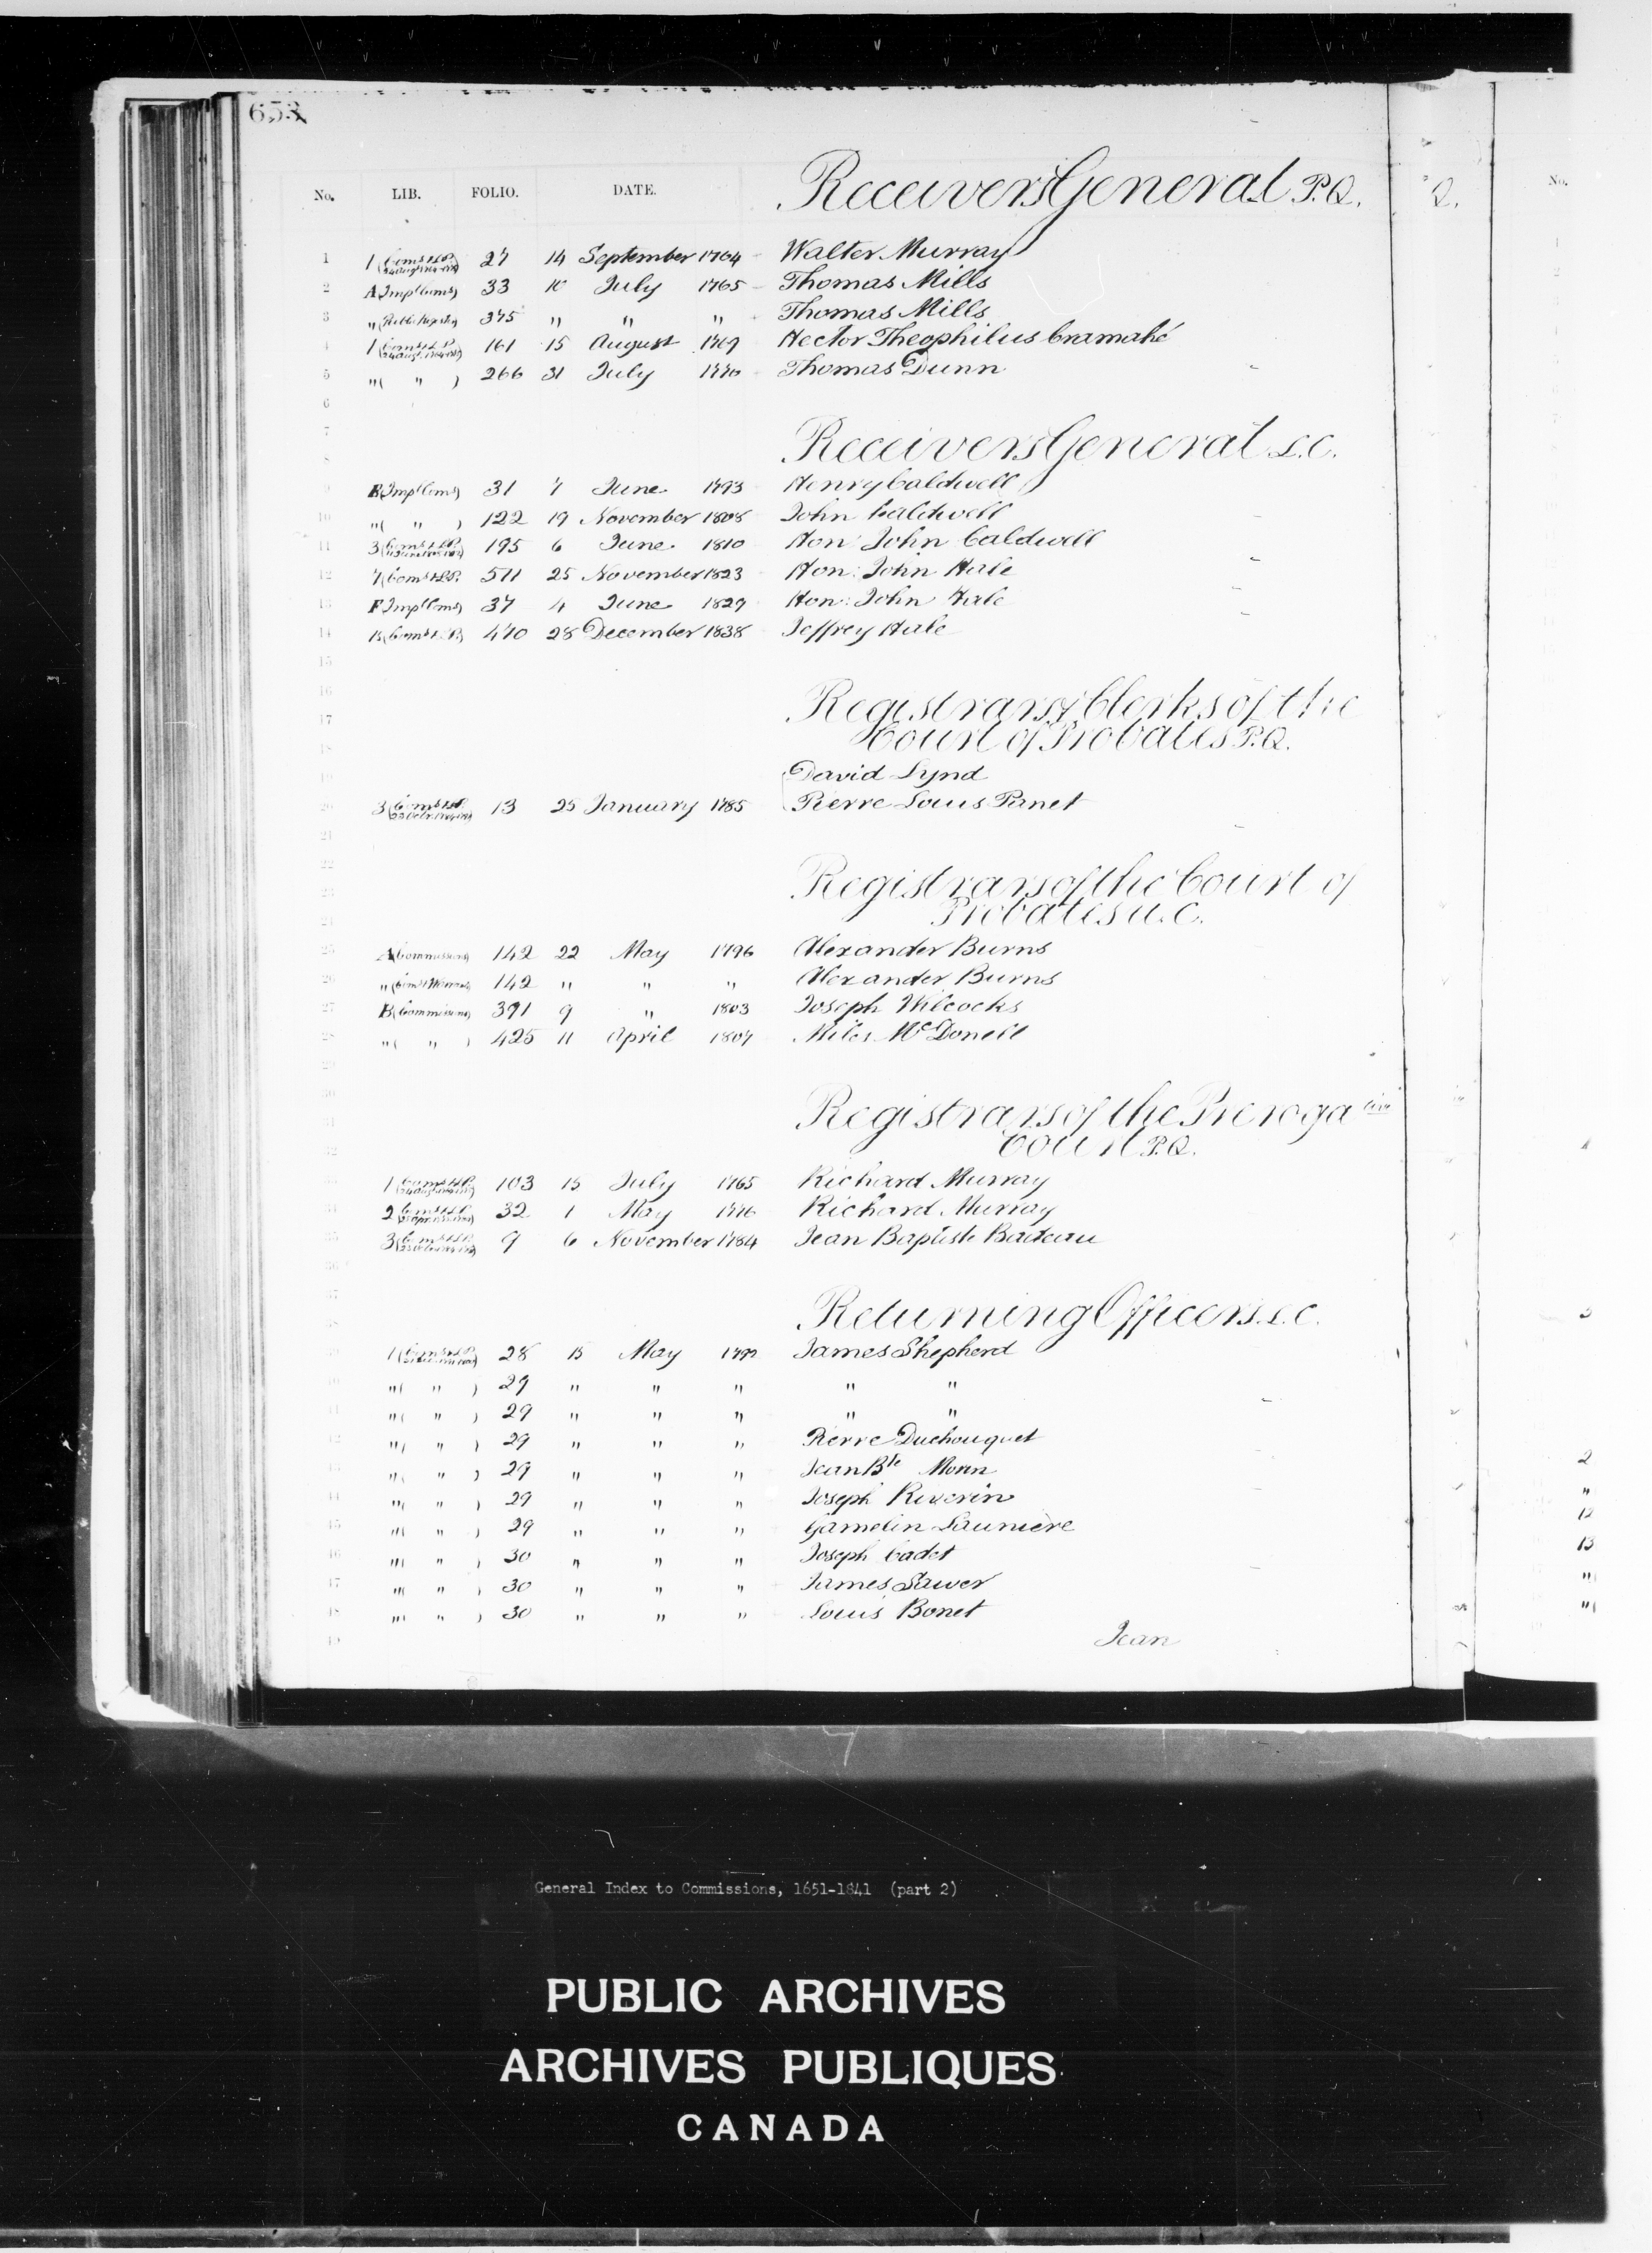 653
No. LIB. FOLIO. DATE. Receivers General P.Q.
1 1 27 14 September 1764 Walter Murray
2 A Impl Coms 33 10 July 1765 Thomas Mills
3 " 375 " " " Thomas Mills
4 1 161 15 August 1769 Hector Theophilus Cramahé
5 " ( " ) 266 31 July 1770 Thomas Dunn
6
7 Receivers General L.C.
8
9 B Impl Coms 31 7 June 1793 Henry Caldwell
10 " ( " ) 122 19 November 1808 John Caldwell
11 3 195 6 June 1810 Hon: John Caldwell
12 7 (Coms & L.P. 511 25 November 1823 Hon: John Hale
13 F Impl Coms 37 4 June 1829 Hon: John Hale
14 470 28 December 1838 Jeffrey Hale
15
16 Registrars & Clerks of the
17 Court of Probates P.Q.
18
19 David Lynd
20 3 13 25 January 1785 Pierre Louis Panet
21
22 Registrars of the Court of
23 Probates U.C.
24
25 A (Commissions) 142 22 May 1796 Alexander Burns
26 " 142 " " " Alexander Burns
27 B (Commissions) 391 9 " 1803 Joseph Wilcocks
28 " ( " ) 425 11 April 1807 Miles McDonell
29
30 Registrars of the Prerogative
31 Court P.Q.
32
33 1 103 15 July 1765 Richard Murray
34 2 32 1 May 1776 Richard Murray
35 3 9 6 November 1784 Jean Baptiste Badeau
36
37 Returning Officers L.C.
38
39 1 28 15 May 1792 James Shepherd
40 " ( " ) 29 " " " " "
41 " ( " ) 29 " " " " "
42 " ( " ) 29 " " " Pierre Duchouquet
43 " ( " ) 29 " " " Jean Bte Morin
44 " ( " ) 29 " " " Joseph Riverin
45 " ( " ) 29 " " " Gamelin Launière
46 " ( " ) 30 " " " Joseph Cadet
47 " ( " ) 30 " " " James Sawer
48 " ( " ) 30 " " " Louis Bonet
49 Jean
General Index to Commissions, 1651-1841 (part 2)
PUBLIC ARCHIVES
ARCHIVES PUBLIQUES
CANADA